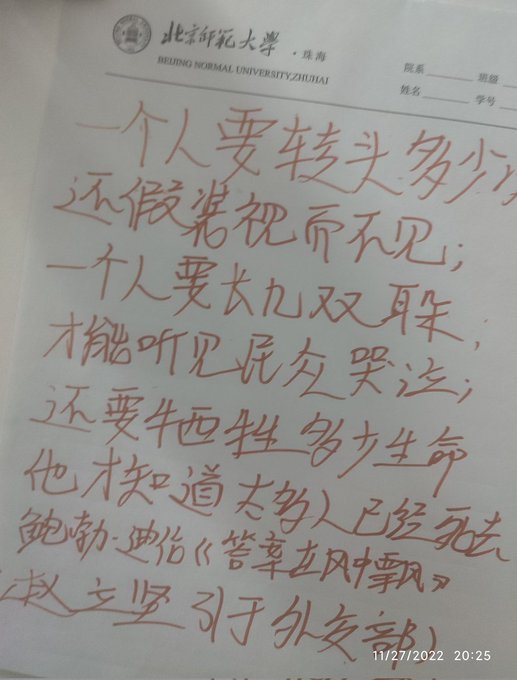 北京师范大学·珠海
BEIJING NORMAL UNIVERSITY,ZHUHAI
院系 班级
姓名 学号
一个人要转头多少
还假装视而不见；
一个人要长几双耳朵，
才能听见民众哭泣；
还要牺牲多少生命
他才知道太多人已经死去
鲍勃·迪伦《答案在风中飘》
赵立坚引于外交部）
11/27/2022 20:25